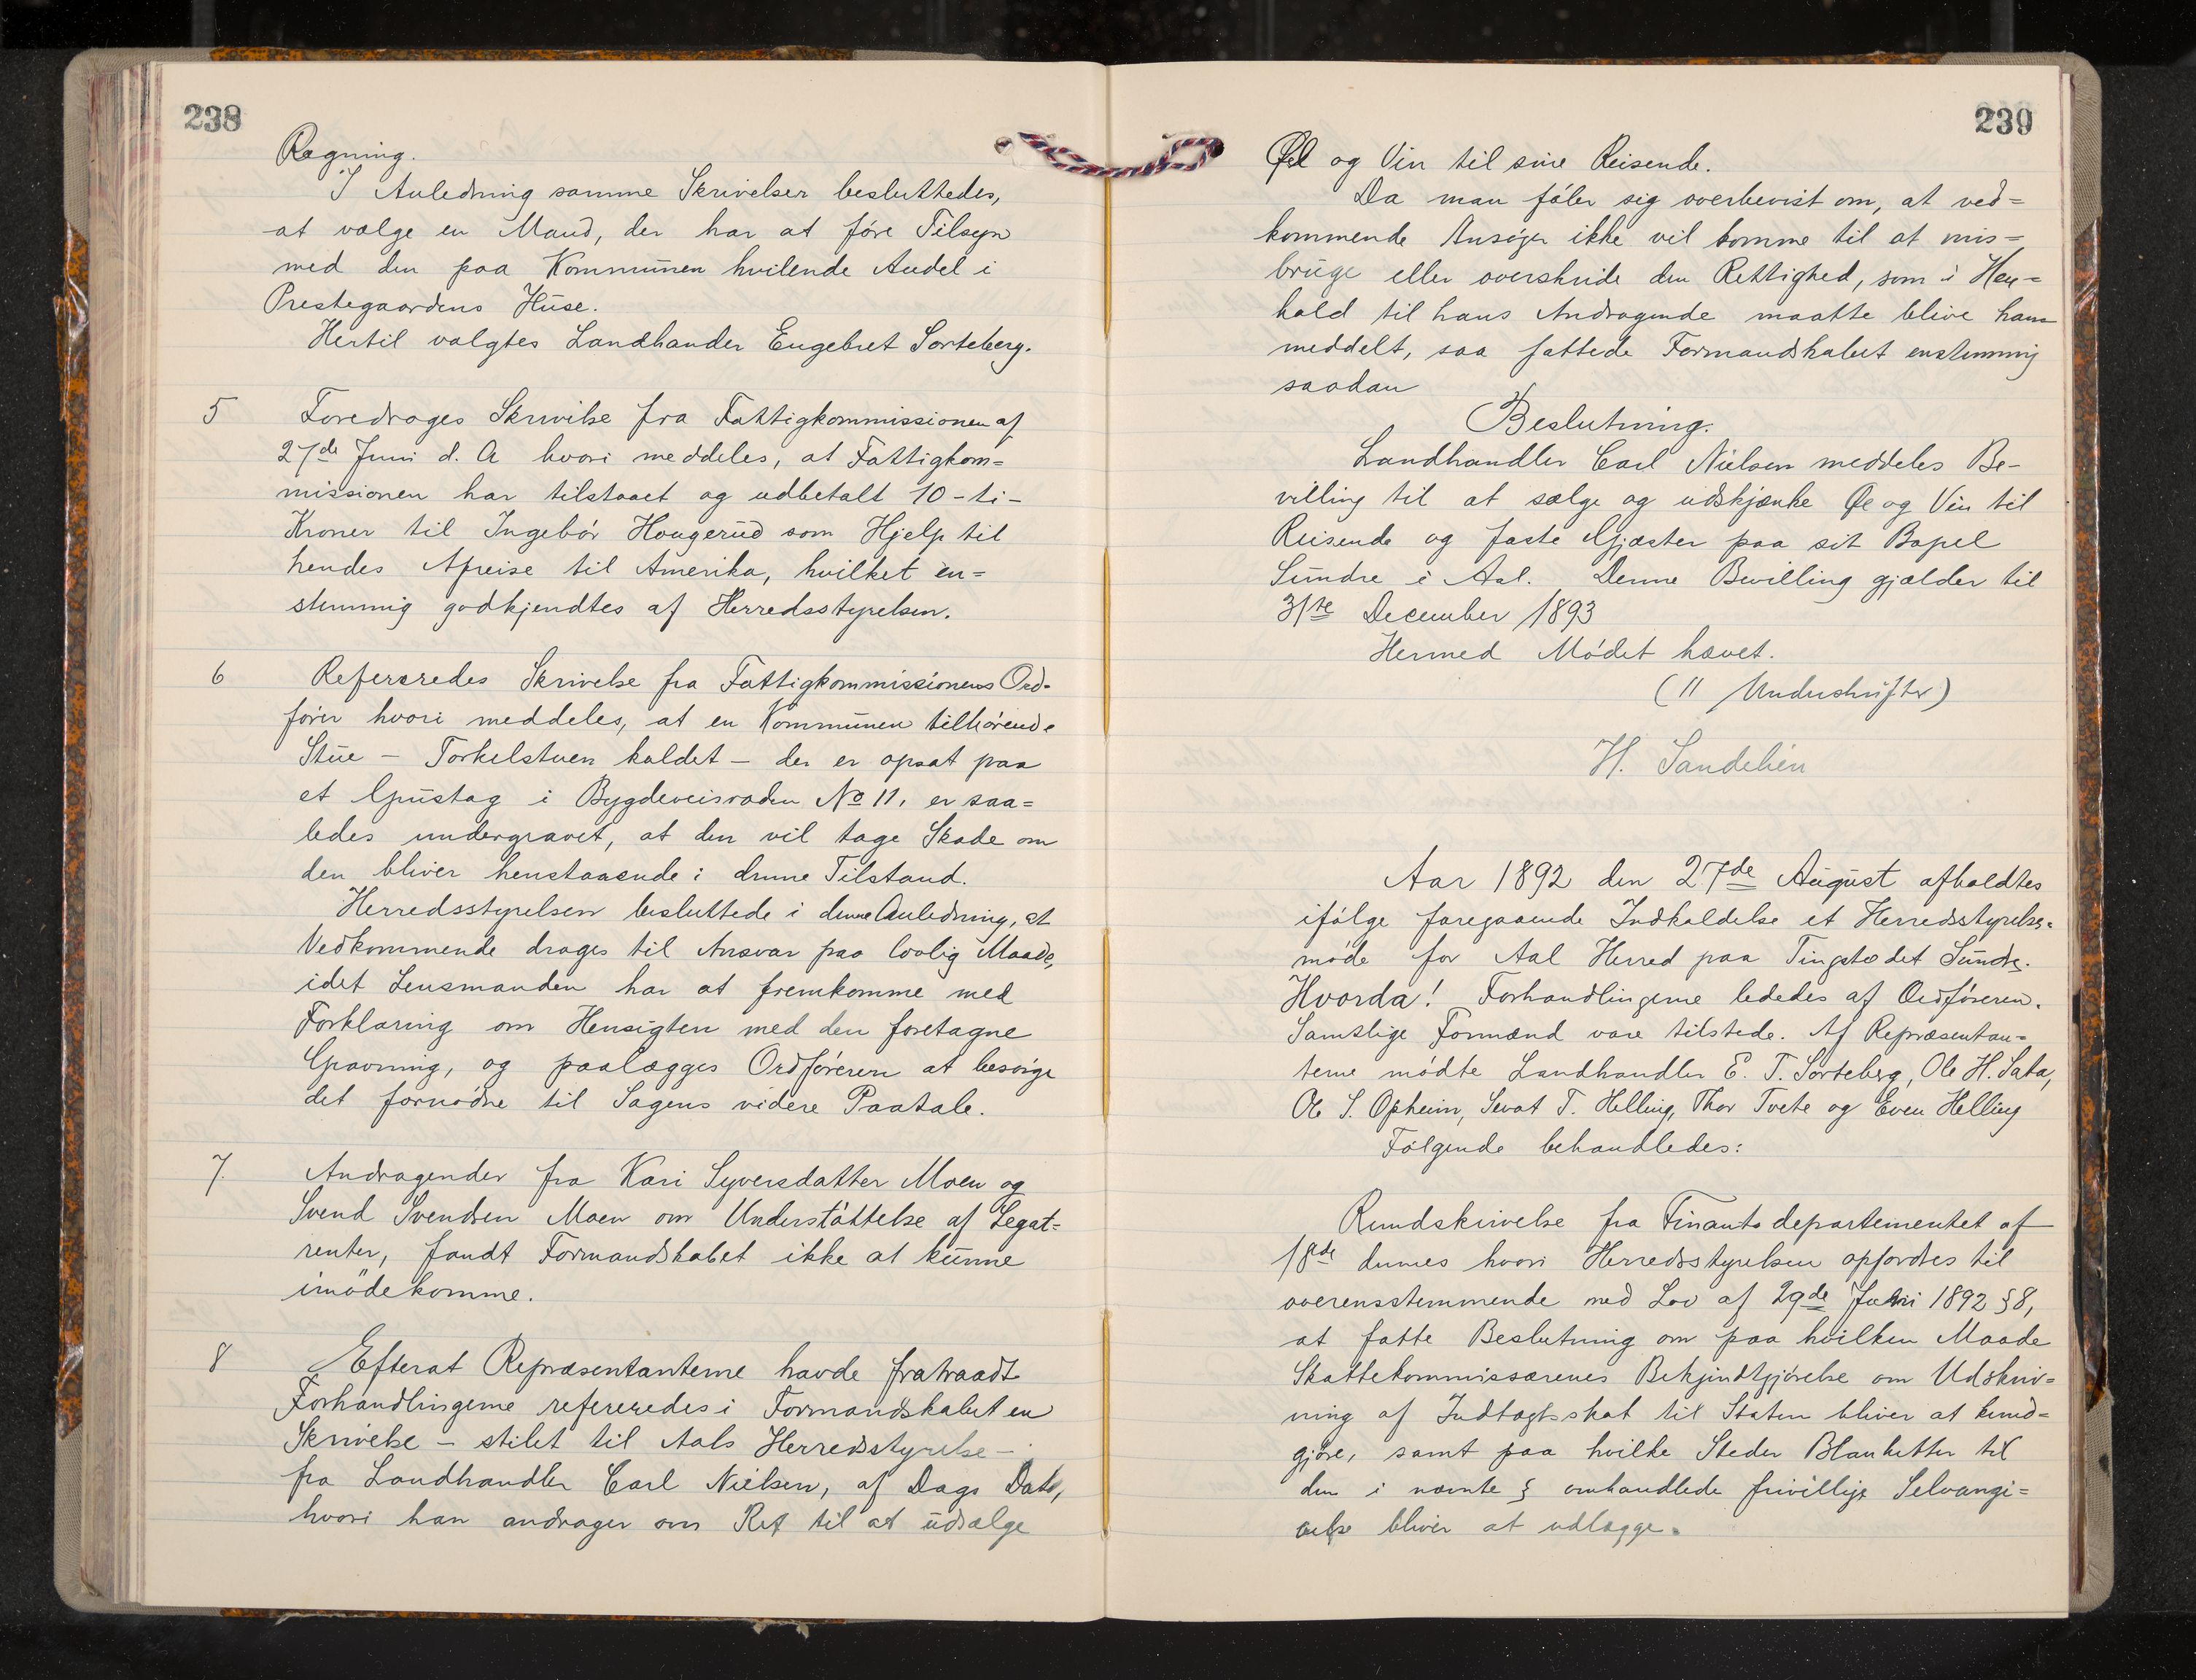 238
Regning.
I Anledning samme Skrivelser besluttedes,
at vælge en Mand, der har at føre Tilsyn
med den paa Kommunen hvilende Andel i
Prestegaardens Huse.
Hertil valgtes Landhander Engebret Sorteberg.
5 Foredroges Skrivelse fra Fattigkommissionen af
27de Juni d. A hvori meddeles, at Fattigkom=
missionen har tilstaaet og udbetalt 10-ti-
Kroner til Ingebór Hougerud som Hjelp til
hendes Afreise til Amerika, hvilket en=
stemmig godkjendtes af Herredsstyrelsen.
6 Refereredes Skrivelse fra Fattigkommissionens Ord=
fører hvori meddeles, at en Kommunen tilhørende
Stue - Torkelstuen kaldet - der er opsat paa
et Grustag i Bygdeveisroden No 11, er saa=
ledes undergravet, at den vil tage Skade om
den bliver henstaaende i denne Tilstand.
Herredsstyrelsen besluttede i denne Anledning, at
Vedkommende drages til Ansvar paa lovlig Maade,
idet Lensmanden har at fremkomme med
Forklaring om Hensigten med den foretagne
Gravning, og paalægges Ordføreren at besørge
det fornødne til Sagens videre Paatale.
7. Andragender fra Kari Syversdatter Moen og
Svend Svendsen Moen om Understøttelse af Legat=
renter, fandt Formandskabet ikke at kunne
imødekomme.
8 Efterat Repræsentanterne havde fratraadt
Forhandlingerne refereredes i Formandskabet en
Skrivelse - stilet til Aals Herredsstyrelse -
fra Landhandler Carl Nielsen, af Dags Dato,
hvori han andrager om Ret til at udsælge
239
Øl og Vin til sine Reisende.
Da man føler sig overbevist om, at ved=
kommende Ansøger ikke vil komme til at mis=
bruge eller overskride den Rettighed, som i Hen=
hold til hans Andragende maatte blive ham
meddelt, saa fattede Formandskabet enstemmig
saadan
Beslutning.
Landhandler Carl Nielsen meddeles Be-
villing til at sælge og udskjænke Øl og Vin til
Reisende og faste Gjæster paa sit Bopel
Sundre i Aal. Denne Bevilling gjælder til
31te December 1893
Hermed Mødet hævet.
(11 Underskrifter)
H. Sandelien
Aar 1892 den 27de August afholdtes
ifølge foregaaende Indkaldelse et Herredsstyrelse=
møde for Aal Herred paa Tingstedet Sundre.
Hvorda! Forhandlingerne lededes af Ordføreren.
Samtlige Formænd vare tilstede. Af Repræsentan=
terne mødte Landhandler E. T. Sorteberg, Ole H. Sata,
Ole S. Opheim, Sevat T. Helling, Thor Tvete og Even Helling
Følgende behandledes:
Rundskrivelse fra Finantsdepartementet af
18de dennes hvori Herredsstyrelsen opfordres til
overensstemmende med Lov af 29de Juni 1892 § 8,
at fatte Beslutning om paa hvilken Maade
Skattekommissærenes Bekjendtgjørelse om Udskriv=
ning af Indtægtsskat til Staten bliver at kund=
gjøre, samt paa hvilke Steder Blanketter til
den i nævnte § omhandlede frivillige Selvangi=
velse bliver at udlægge.